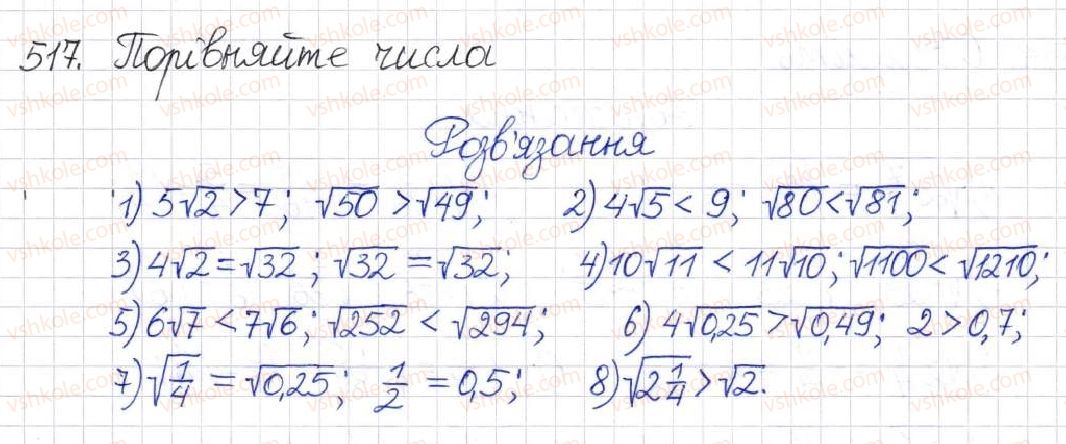 517. Порівняйте числа
Розв'язання
1) 5√2 > 7; √50 > √49; 2) 4√5 < 9; √80 < √81;
3) 4√2 = √32; √32 = √32; 4) 10√11 < 11√10; √1100 < √1210;
5) 6√7 < 7√6; √252 < √294; 6) 4√0,25 > √0,49; 2 > 0,7;
7) √1/4 = √0,25; 1/2 = 0,5; 8) √2 1/4 > √2.